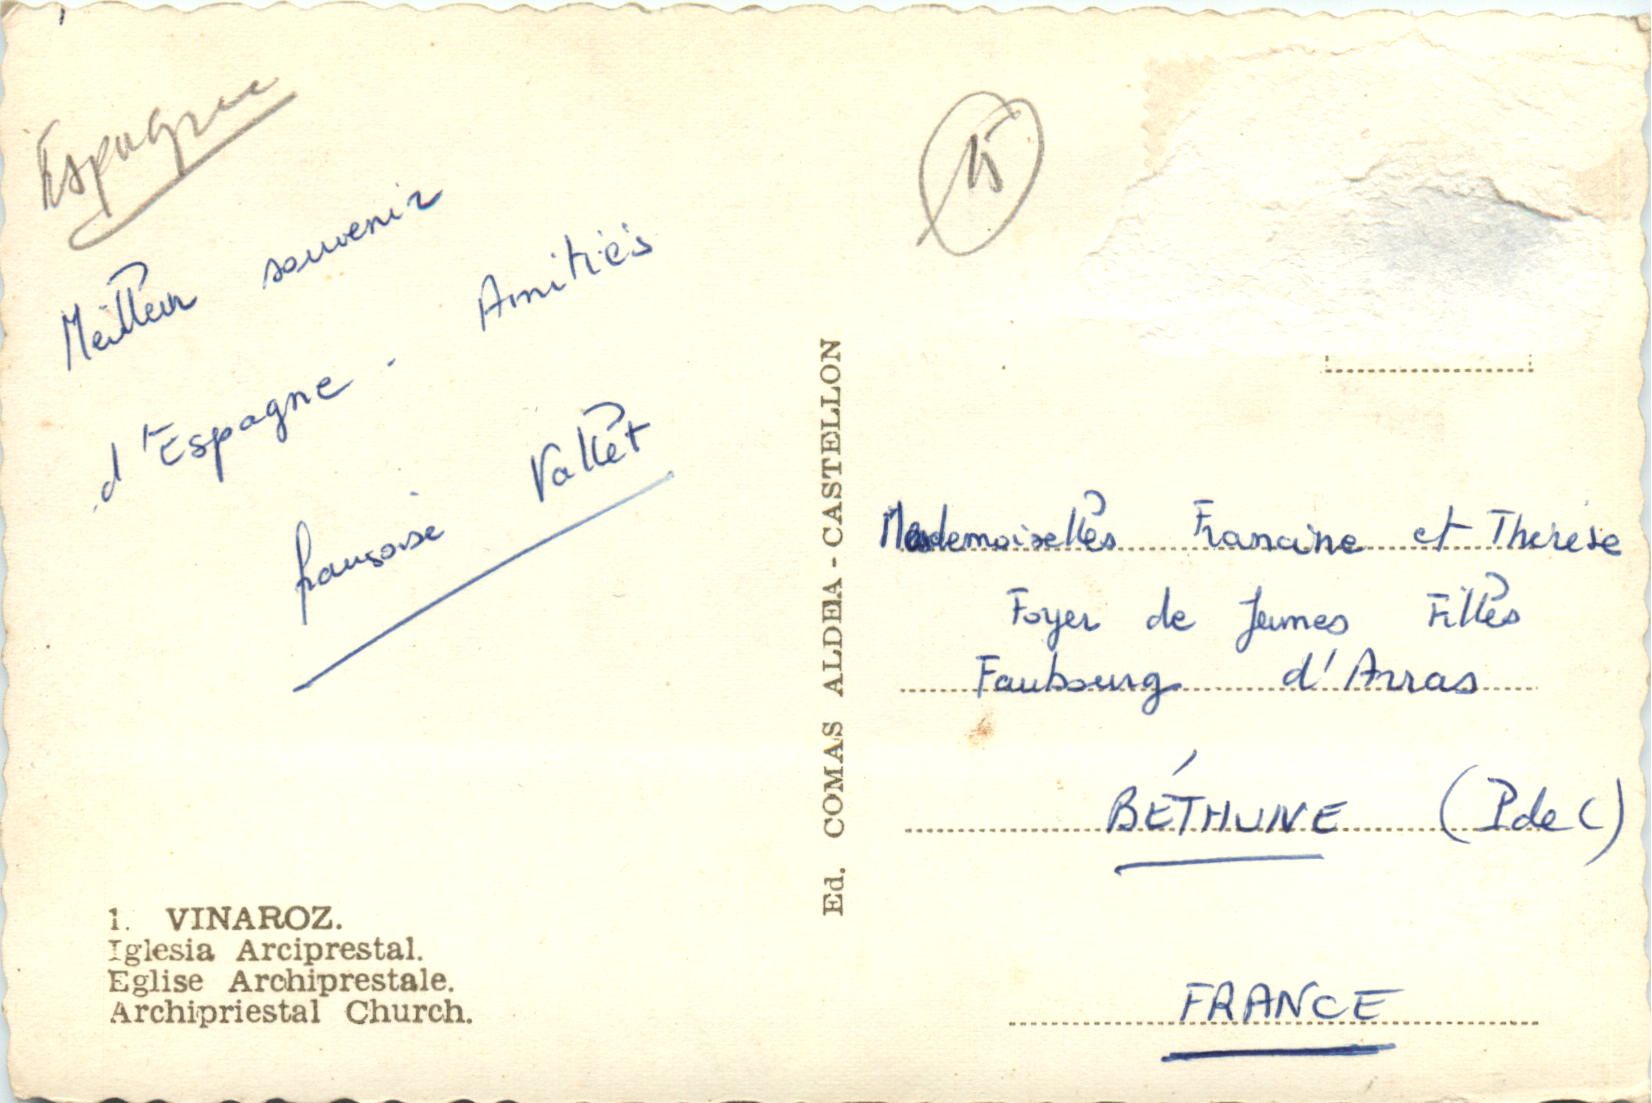 Espagne
Meilleur souvenir
d'Espagne - Amitiés
françoise Vallet
1. VINAROZ.
Iglesia Arciprestal.
Eglise Archiprestale.
Archipriestal Church.
Ed. COMAS ALDEA - CASTELLON
15
Mesdemoiselles Francine et Thérèse
Foyer de Jeunes Filles
Faubourg d'Arras
BÉTHUNE (P de C)
FRANCE